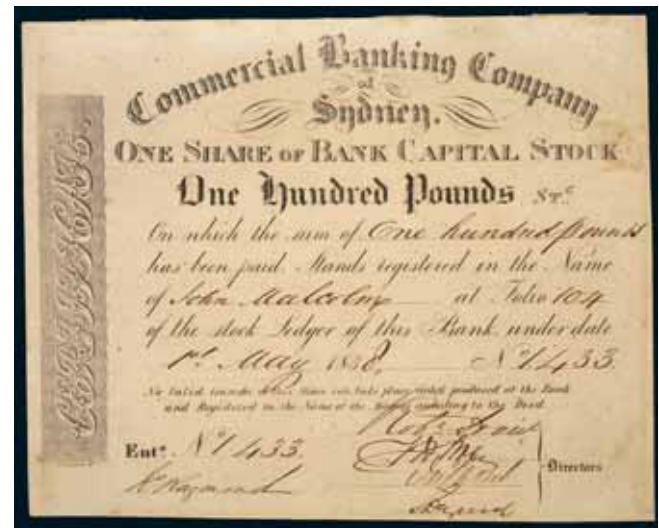 Commercial Banking Company
of
Sydney.
ONE SHARE OF BANK CAPITAL STOCK
One Hundred Pounds St.g
On which the sum of One hundred pounds
has been paid. Stands registered in the Name
of John Malcolm at Folio 104
of the stock Ledger of this Bank under date
1st May 1838. No 1433.
No valid transfer of this Share can take place until produced at the Bank
and Registered in the Name of the according to the Deed.
Entd. No 1433.
Directors